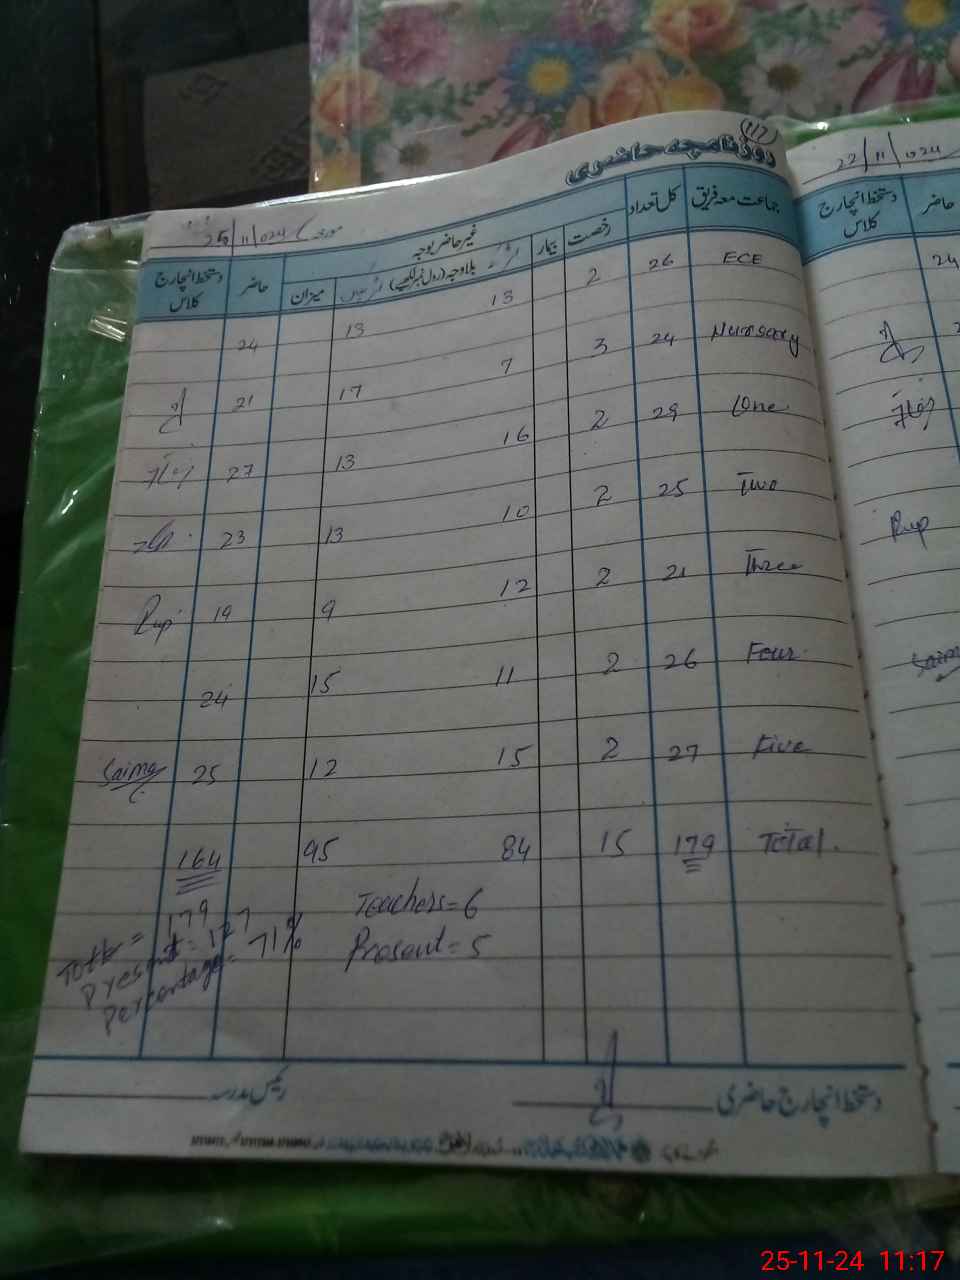 (117)
روزنامچہ حاضری
مورخہ 25/11/024
جماعت معہ فریق کل تعداد رخصت بیمار غیر حاضر بوجہ حاضر دستخط انچارج کلاس
بلاوجہ (رول نمبر لکھیے) میزان
ECE 26 2 13 13 24
Nursary 24 3 7 17 21
One 29 2 16 13 27
Two 25 2 10 13 23
Three 21 2 12 9 19
Four 26 2 11 15 24
Five 27 2 15 12 25 Saima
Total. 179 15 84 95 164
Teachers = 6
Present = 5
Total = 179
Present = 127
Percentage = 71%
دستخط انچارج حاضری
رئیس مدرسہ
22/11/024
حاضر دستخط انچارج کلاس
24
25-11-24 11:17